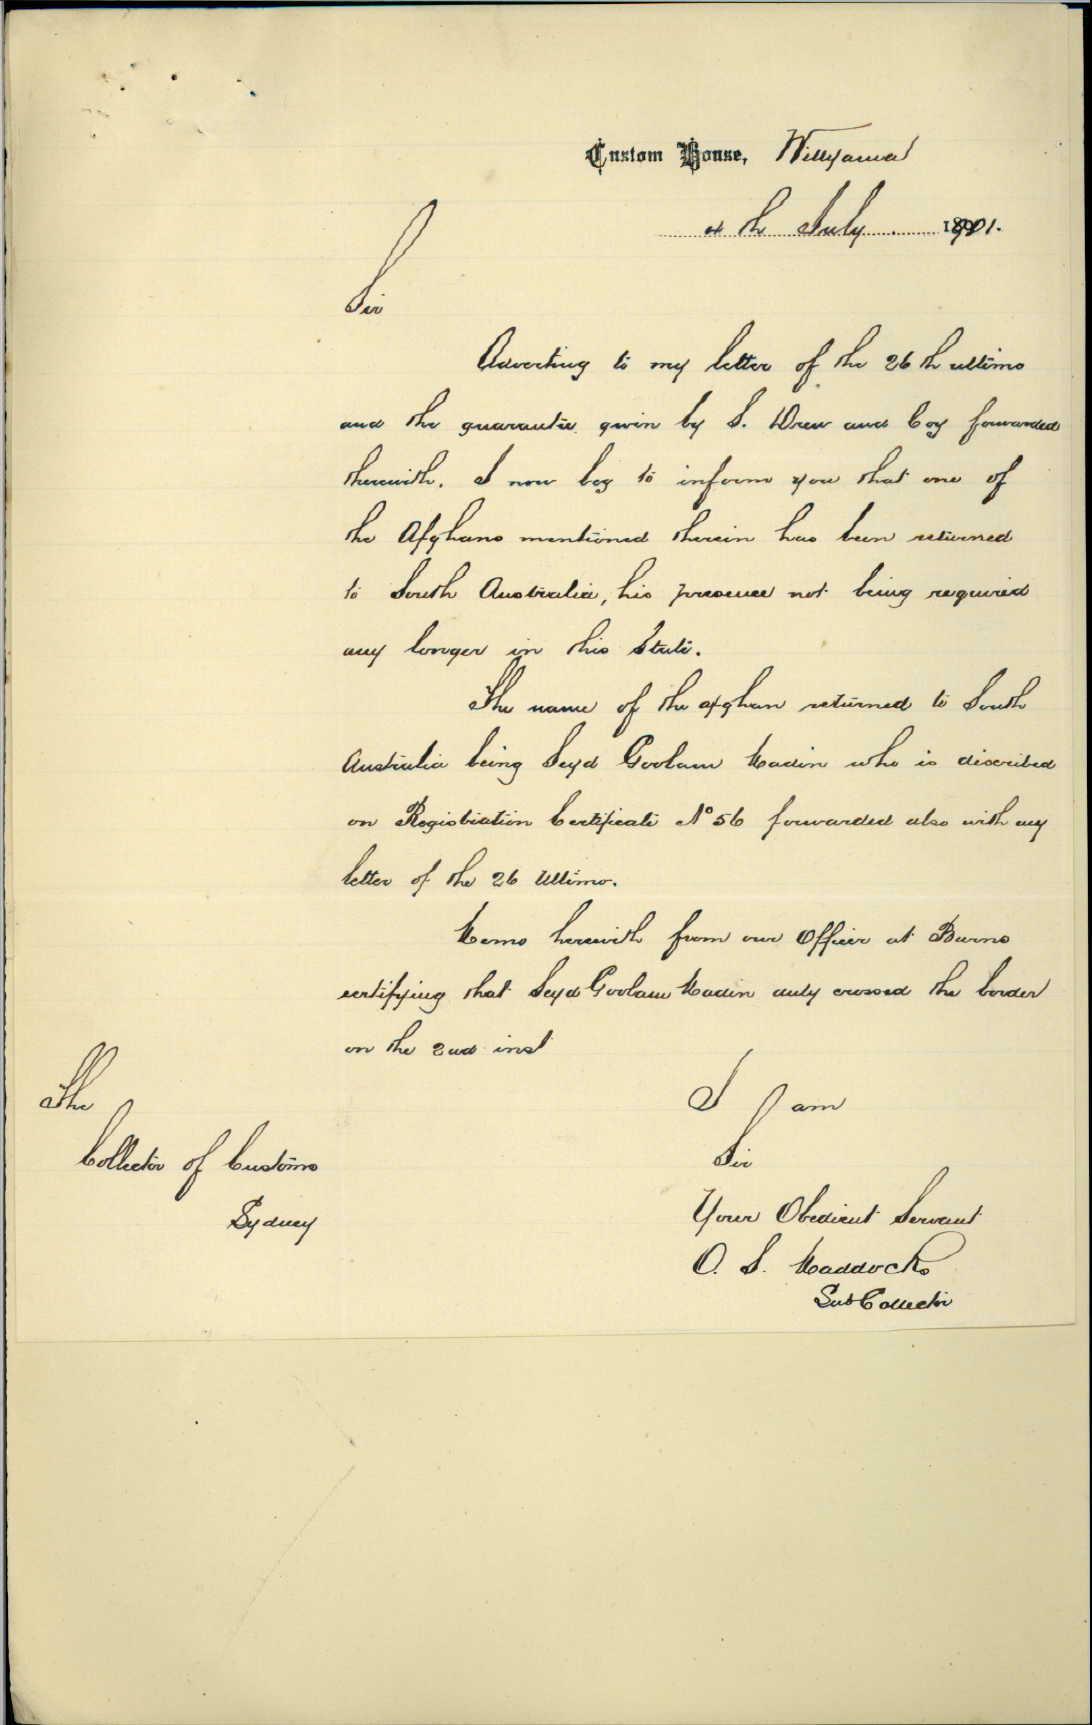 Custom House, Willyama
4th July 1901.
Sir
Adverting to my letter of the 26th ultimo
and the guarantee given by S. Drew and Coy forwarded
therewith. I now beg to inform you that one of
the Afghans mentioned therein has been returned
to South Australia, his presence not being required
any longer in this State.
The name of the afghan returned to South
Australia being Seyd Goolam Kadin who is discribed
on Registration Certificate No 56 forwarded also with my
letter of the 26 Ultimo.
Memo herewith from our Officer at Burns
certifying that Seyd Goolam Kadin duly crossed the border
on the 2nd inst
I am
Sir
Your Obedient Servant
O. S. Maddocks
Sub Collector
The
Collector of Customs
Sydney